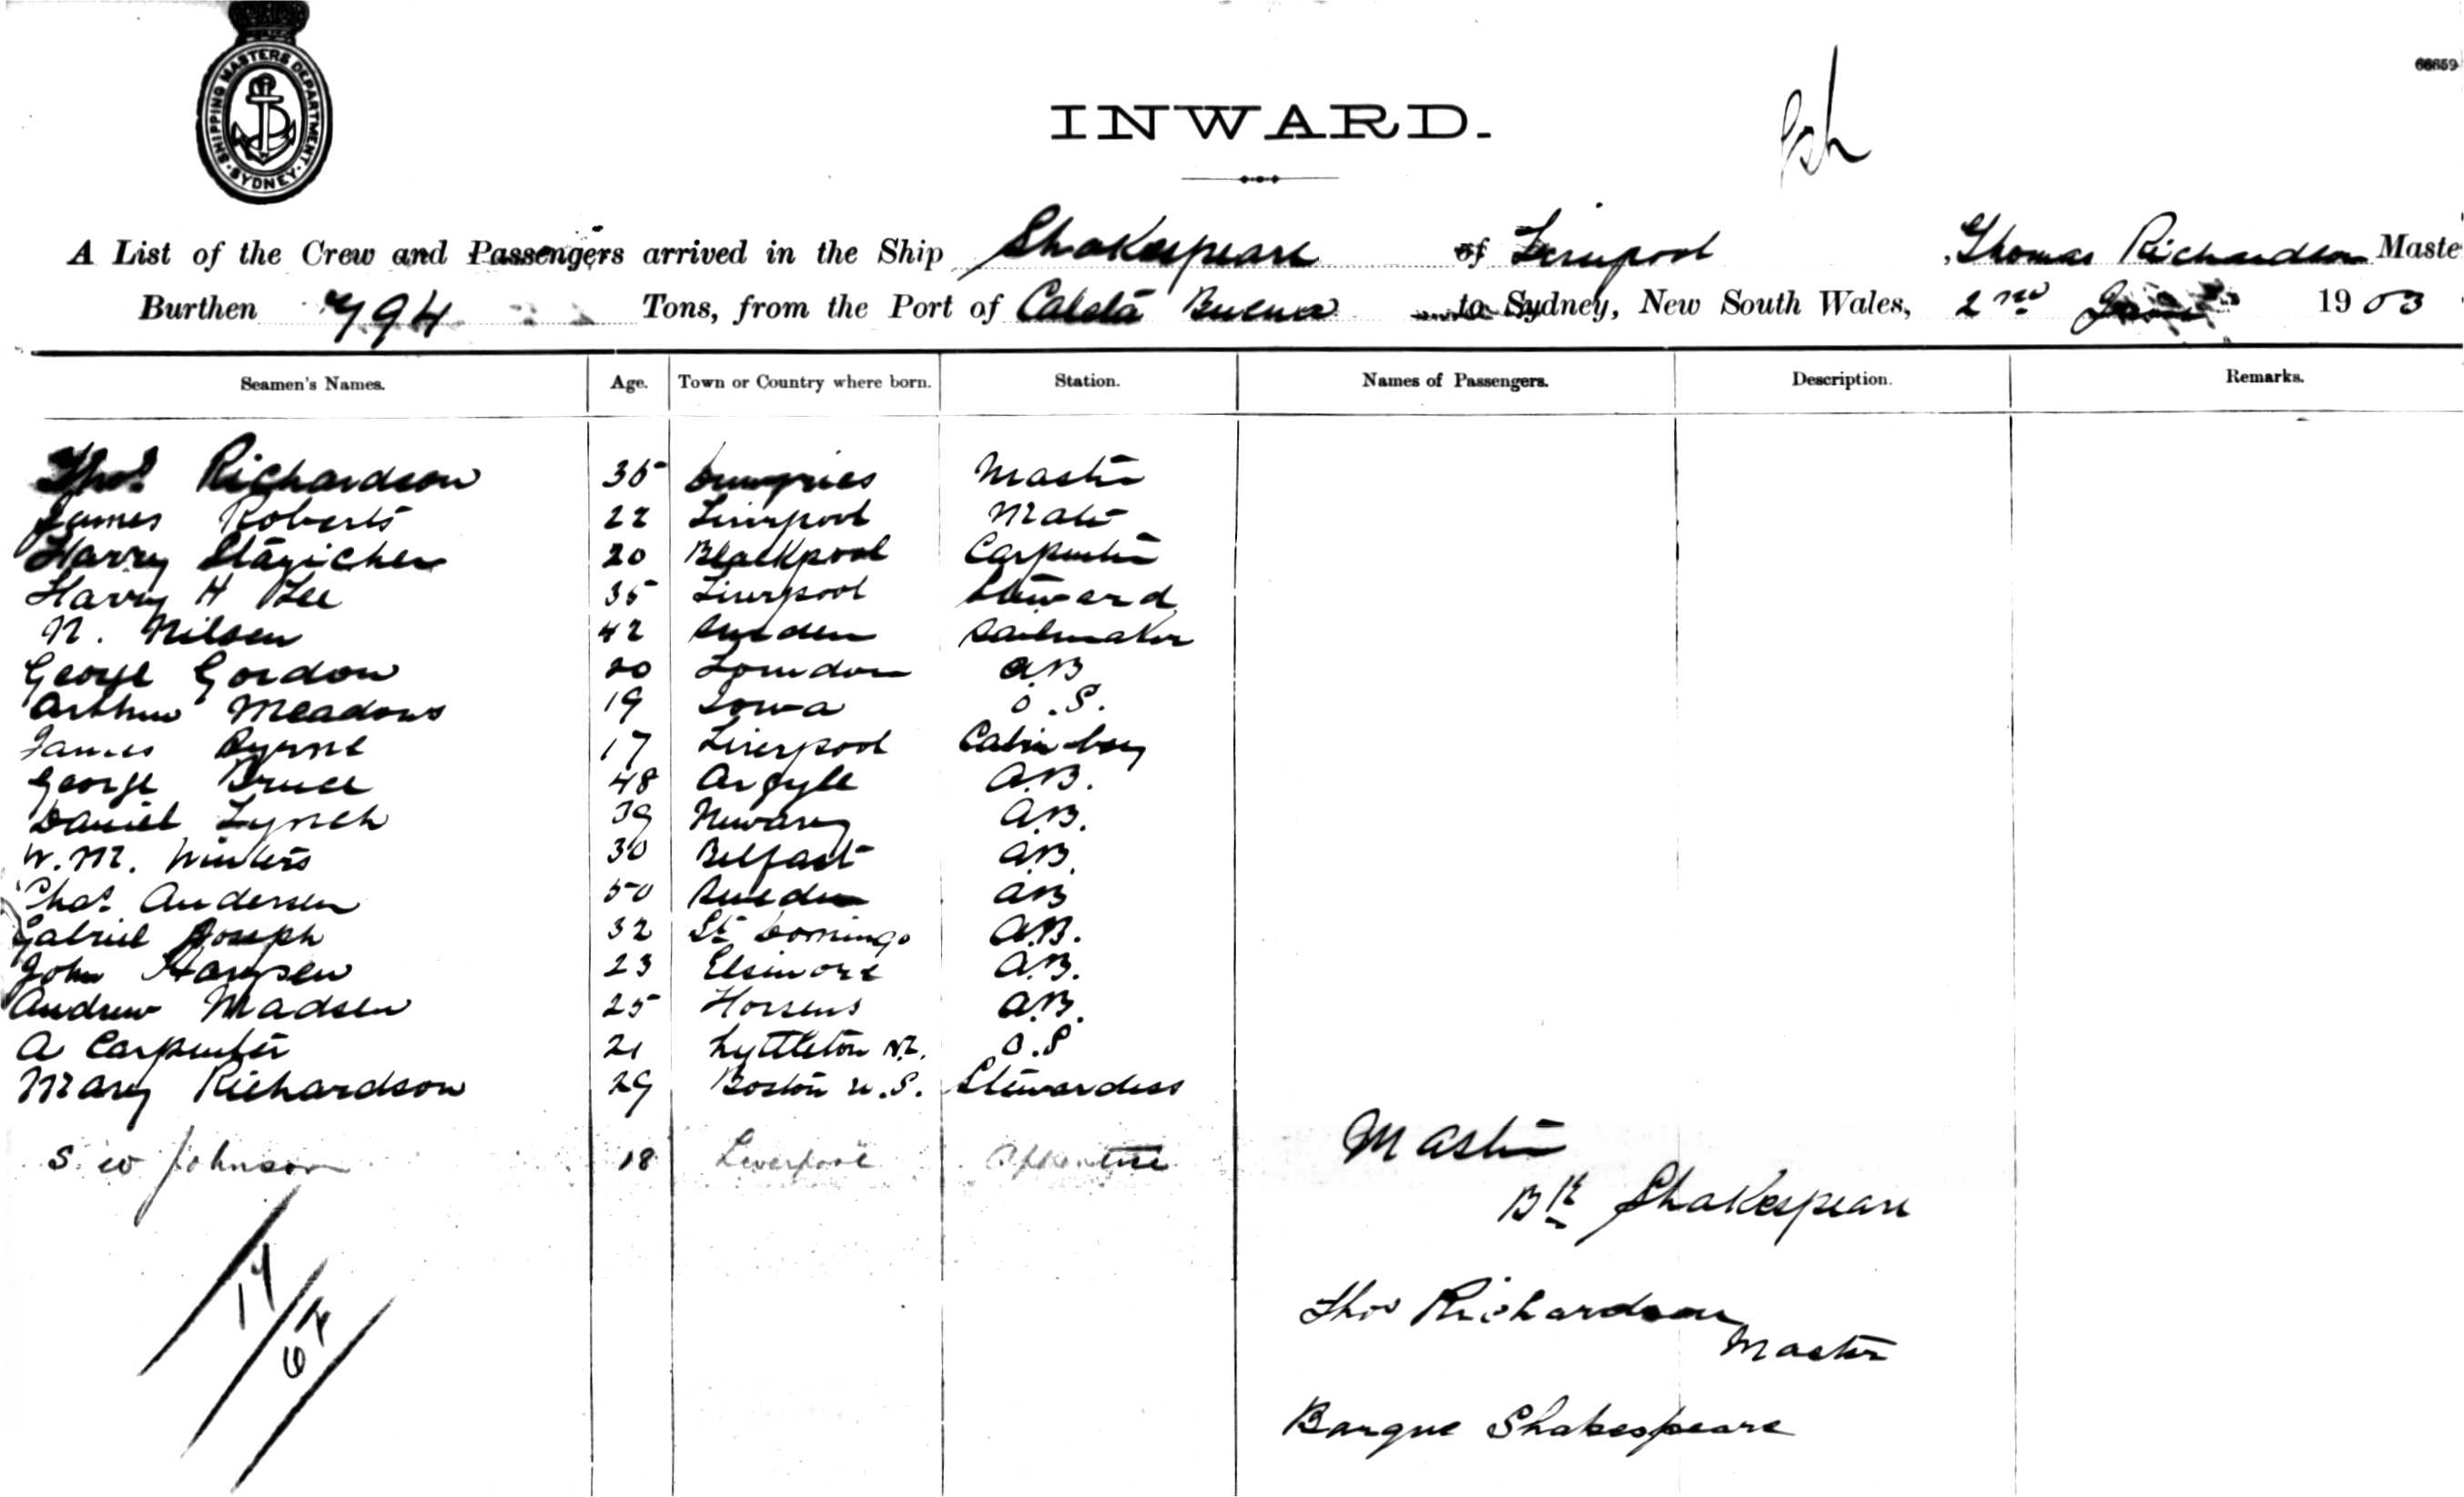 SHIPPING MASTERS DEPARTMENT. SYDNEY.
66659
INWARD.
A List of the Crew and Passengers arrived in the Ship Shakespeare of Liverpool , Thomas Richardson Maste
Burthen 794 Tons, from the Port of Caleta Buena to Sydney, New South Wales, 2nd 1903
Seamen's Names. Age. Town or Country where born. Station. Names of Passengers. Description. Remarks.
Thos Richardson 35 Dumfries Master
James Roberts 22 Liverpool Mate
Harry 20 Blackpool Carpenter
Harry H Lee 35 Liverpool Steward
N. Nilsen 42 Sweden Sailmaker
George Gordon 20 London A.B
Arthur Meadows 19 Iowa O.S.
James Byrne 17 Liverpool Cabin boy
George Bruce 48 Argyle A.B.
Daniel Lynch 39 A.B.
W.M. Winters 30 Belfast A.B.
Chas Andersen 50 Sweden A.B
Gabriel Joseph 32 St Domingo A.B.
John 23 Elsinore A.B.
Andrew Madsen 25 Horsens A.B.
A Carpenter 21 Lyttleton N.Z. O.S
Mary Richardson 29 Boston U.S. Stewardess
S W Johnson 18 Liverpool
Master
Bk Shakespeare
17
Thos Richardson
Master
Barque Shakespeare